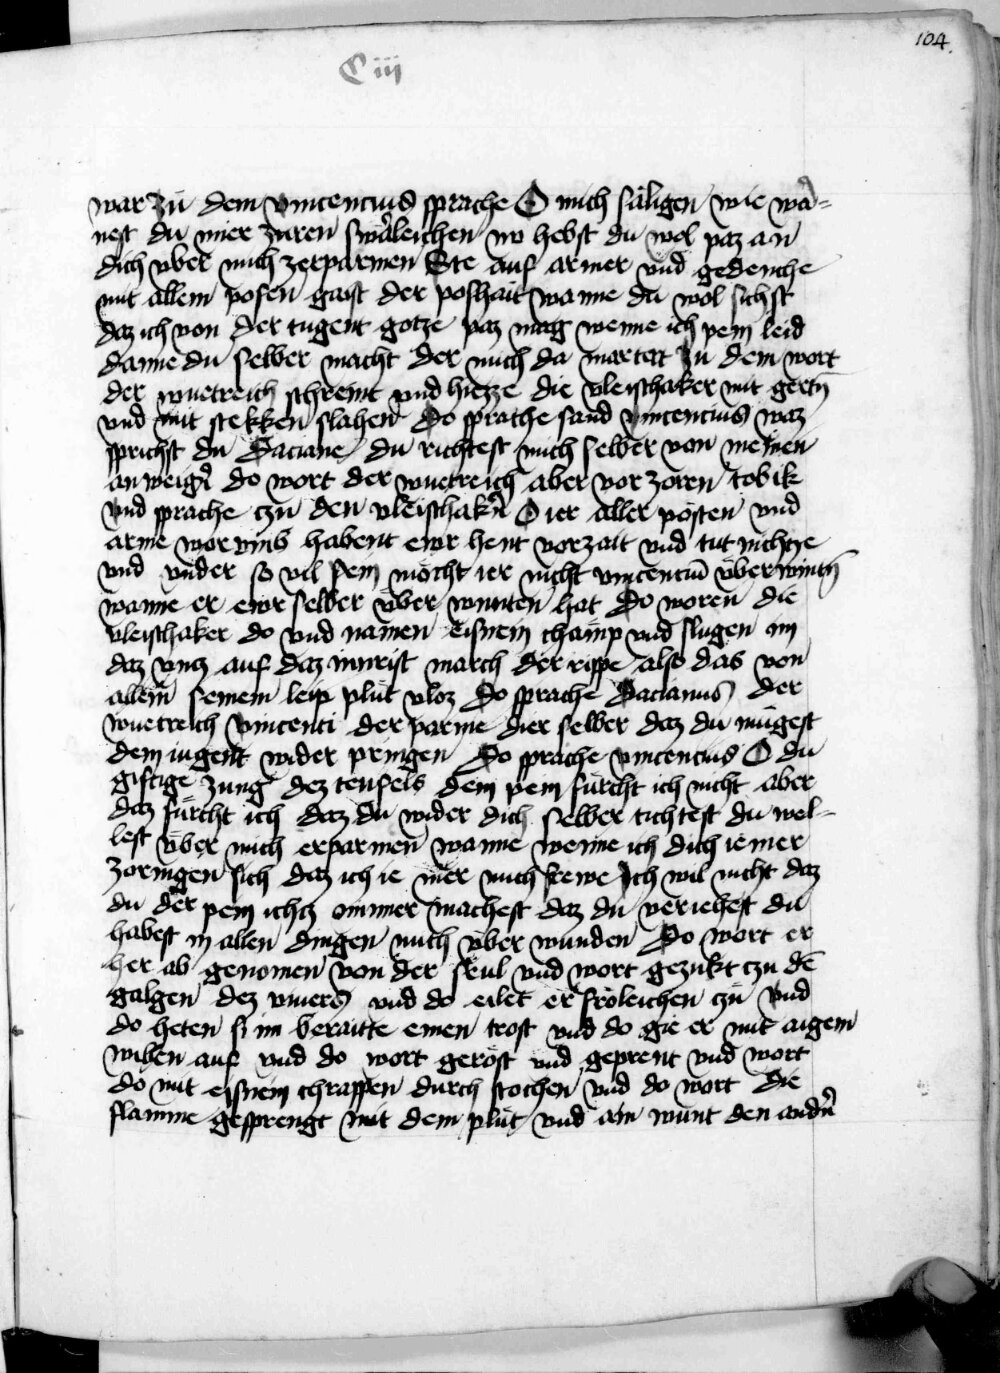 104.
C iii
war zů dem vincencius sprache O mich säligen wie wä=
nest du mier zuren swärleichen nv hebst du wol paz an
dich vber mich zerparmen Ste auf armer vnd gedenche
mit allem posen gaist der poshait wanne du wol sichst
daz ich von der tugent gotze paz mag wenne ich pein leid
danne du selber macht der mich da martert Zu dem wort
der wuetreich schreint vnd hiezze die vleischaker mit gertn̄
vnd mit stekken slahen Do sprache sand vincencius waz
sprichst du Daciane du richtest mich selber von meinen
an weigr̄ do wort der wuetreich aber vor zoren tobik
vnd sprache czů den vleischakn̄ O ier aller posten vnd
arme worvmb habent ewr hent vorzait vnd tut nichcze
vnd vnder so vil pein möcht ier nicht vincenciū überwintn̄
wanne er ewr selber über wunten hat Do woren die
vleischaker do vnd namen eisnein chämp vnd slugen im
daz vncz auf daz innrist march der rippe also das von
allem seinem leip plůt vloz Do sprache Dacianus der
wuetreich Vincenti der parme dier selber daz du mügest
dein iugent wider pringen Do sprache vincencius O du
giftige zung dez teufels dein pein fürcht ich nicht aber
daz fürcht ich daz du wider dich selber tichtest du wel=
lest über mich erparmen wanne wenne ich dich ie mer
zornigen sich daz ich ie mer mich frewe Ich wil nicht daz
du der pein ichcz minner machest daz du veriehest du
habest in allen dingen mich vber wunden Do wort er
her ab genomen von der seul vnd wort gezukt czu dē
galgen dez viwers vnd do eilet er fröleichen czů vnd
do heten si im beraitte einen rost vnd do gie er mit aigem
willen auf vnd do wort geröst vnd geprent vnd wort
do mit eisnein chrappen durch stochen vnd do wort die
flamme gesprengt mit dem plůt vnd ain wunt den andn̄